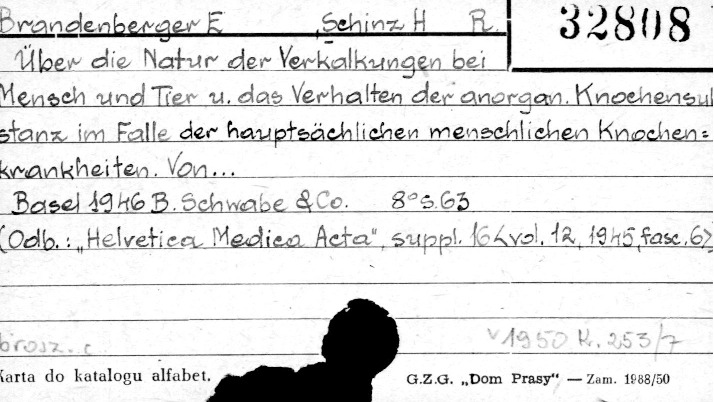 Brandenberger E , Schinz H R. 32808
Über die Natur der Verkalkungen bei
Mensch und Tier u. das Verhalten der anorgan. Knochensub
stanz im Falle der hauptsächlichen menschlichen Knochen=
krankheiten. Von...
Basel 1946 B. Schwabe & Co. 8° s. 63
(Odb.: „Helvetica Medica Acta", suppl. 16 <vol. 12, 1945, fasc. 6>
brosz. c v 1950 K. 253/7
Karta do katalogu alfabet. G.Z.G. „Dom Prasy" — Zam. 1988/50